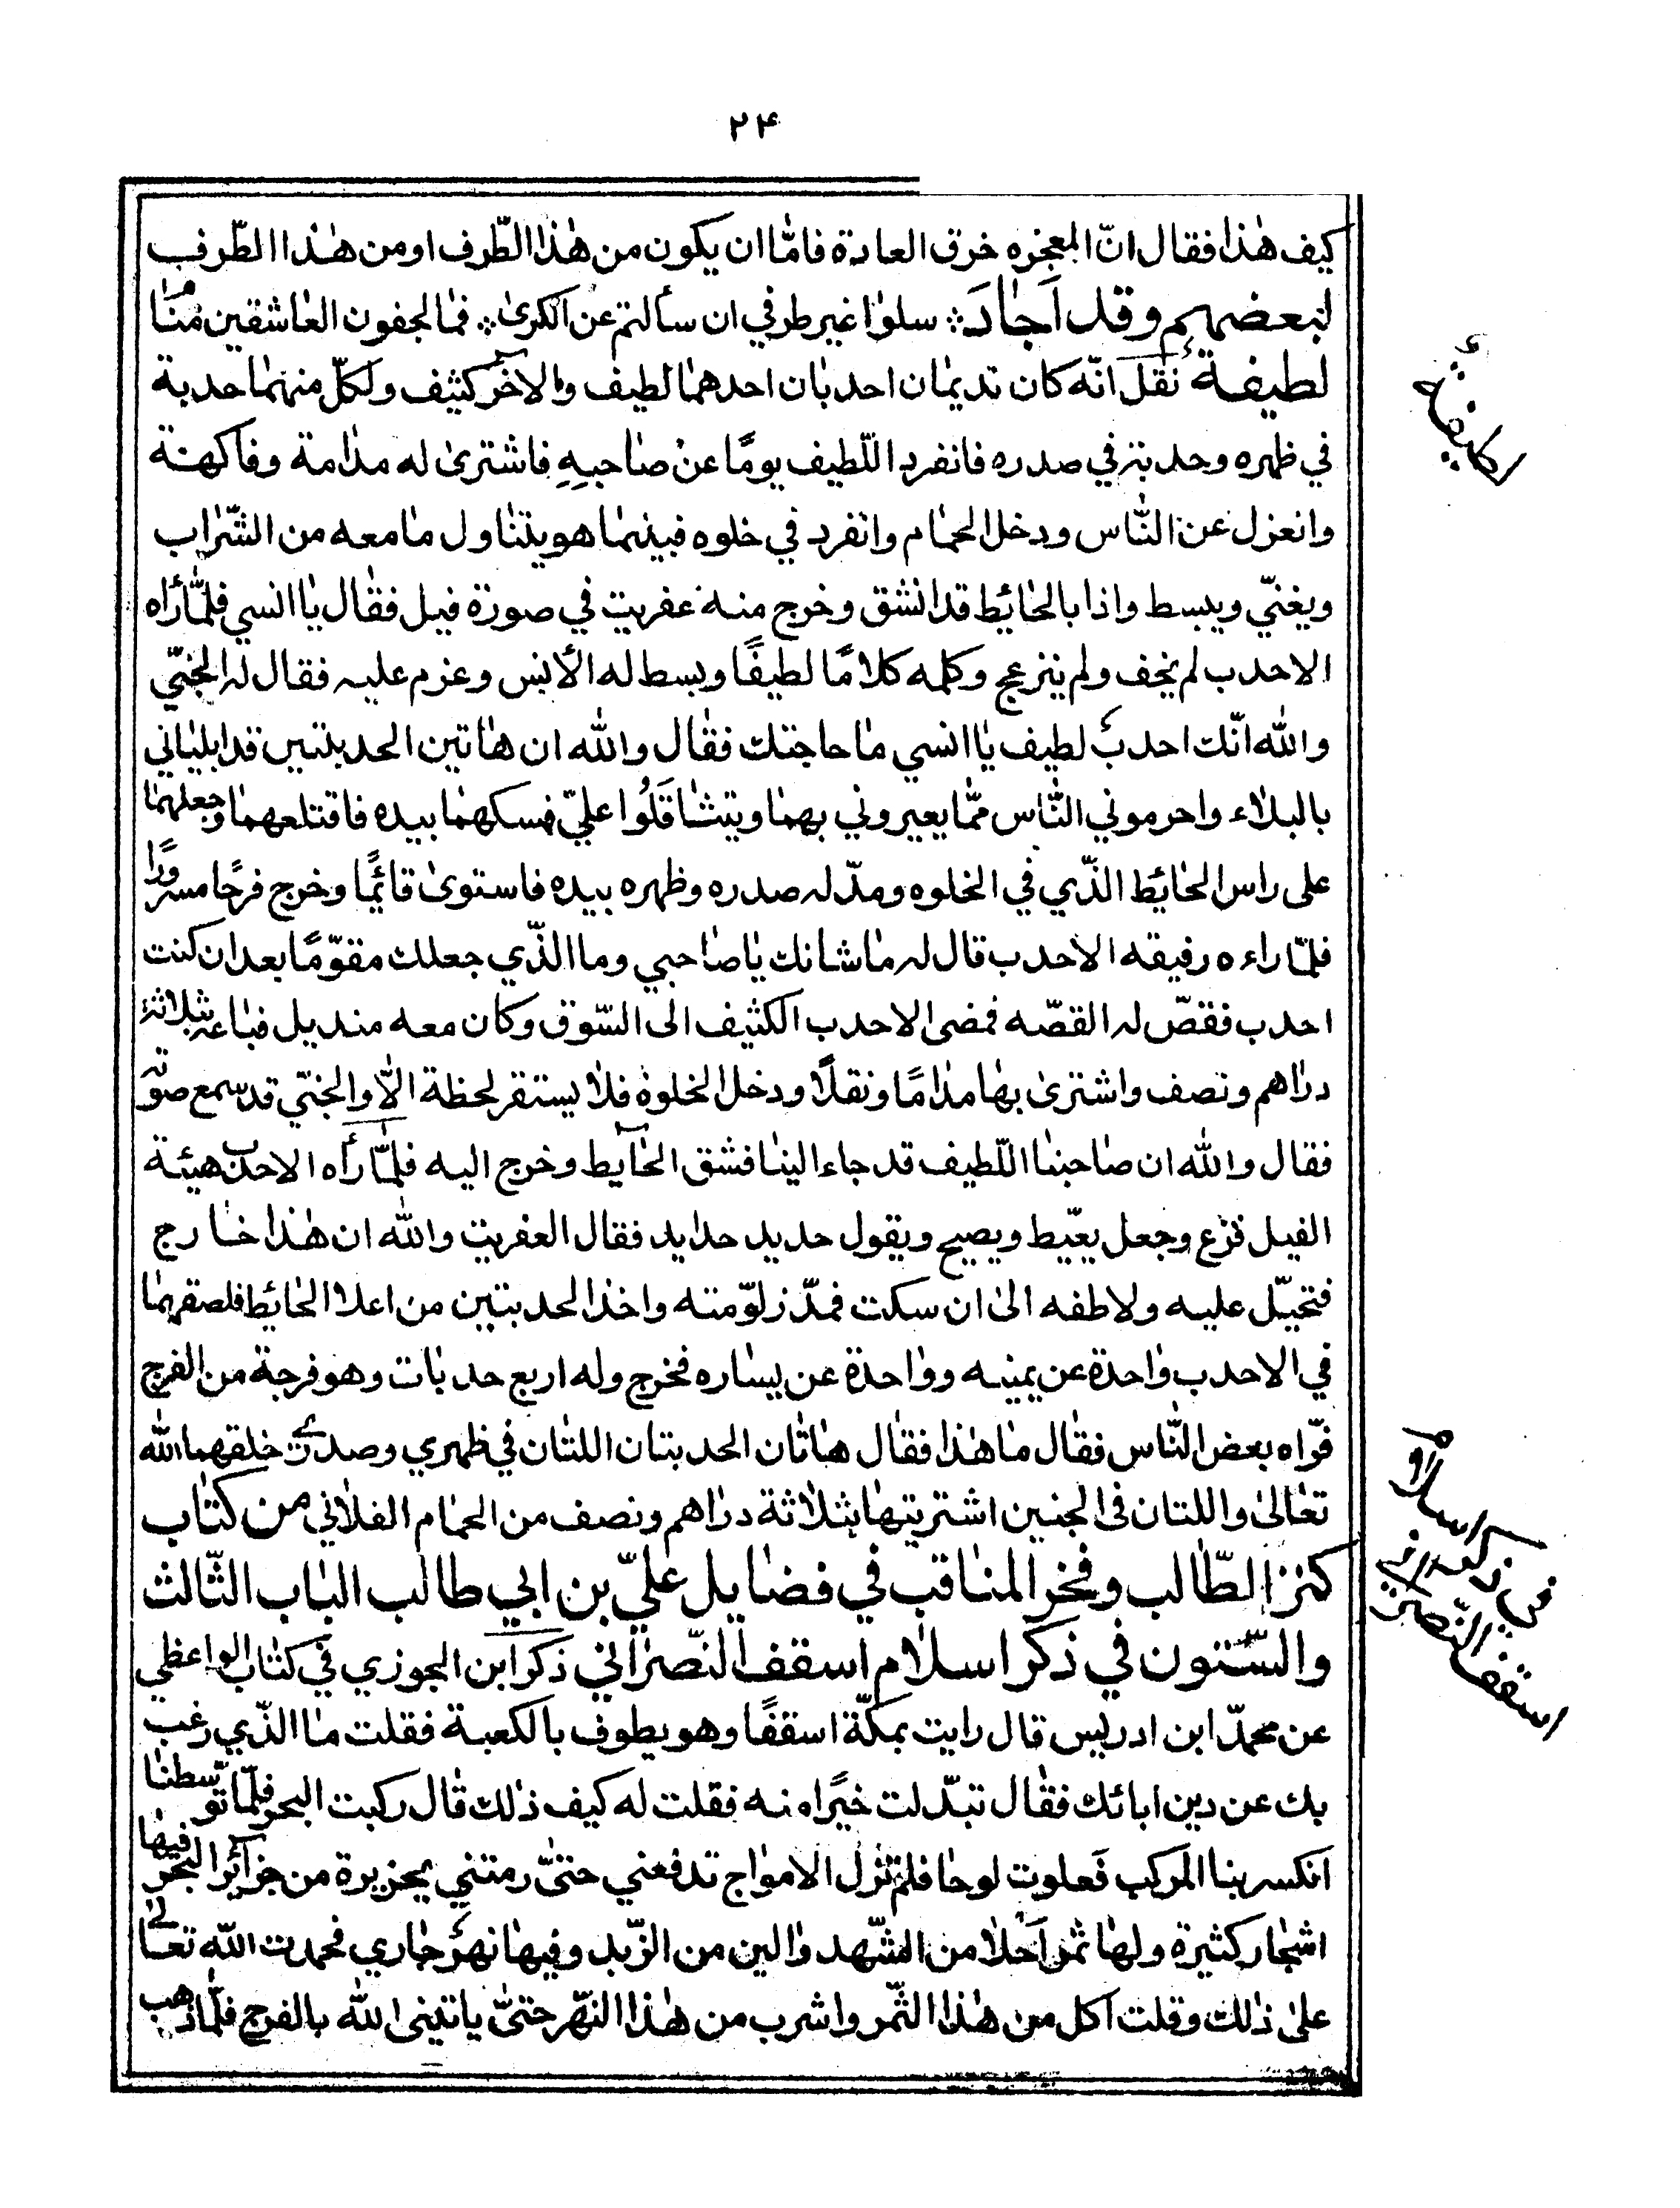 ۲۴
كيف هٰذا فقال انّ المعجزه خرق العادة فامّا ان يكون من هٰذا الطّرف او من هٰذا الطّرف
لبعضهم وقد اَجادَ ؞ سلوا غير طرفي ان سألتم عن الكرىٰ ؞ فما لجفون العاشقين منام
لطيفة نقل انّه كان نديمان احدبان احدهما لطيف والاخر كثيف ولكلّ منهما حدبة
في ظهره وحدبة في صدره فانفرد اللّطيف يومًا عن صاحبهِ فاشترىٰ له مدامة وفاكهة
وانعزل عن النّاس ودخل الحمام وانفرد في خلوه فبينما هو يتناول ما معه من الشّراب
ويغنّي ويبسط واذا بالحائيط قد انشق وخرج منه عفريت في صورة فيل فقال يا انسي فلمّا رأه
الاحدب لم يخف ولم ينزعج وكلمه كلامًا لطيفًا وبسط له الأنس وعزم عليه فقال له الجنّي
والله انّك احدب لطيف يا انسي ما حاجتك فقال والله ان هاتين الحدبتين قد ابلياني
بالبلاء واحرموني النّاس ممّا يعيروني بهما ويتثاقَلُوا عليّ فمسكهما بيده فاقتلعهما وجعلهما
على راس الحائيط الذّي في الخلوه ومدّ له صدره وظهره بيده فاستوىٰ قائمًا وخرج فرحًا مسرورًا
فلمّا راءه رفيقه الاحدب قال له ما شانك يا صاحبي وما الذّي جعلك مقوّمًا بعد ان كنت
احدب فقصّ له القصّه فمضى الاحدب الكثيف الى السّوق وكان معه منديل فباعه بثلاثة
دراهم ونصف واشترىٰ بها مدامًا ونقلًا ودخل الخلوة فلا يستقر لحظة الّا والجنّي قد سمع صوته
فقال والله ان صاحبنا اللّطيف قد جاء الينا فشق الحايط وخرج اليه فلمّا رأه الاحدب هيئة
الفيل فزع وجعل يعّيط ويصيح ويقول حديد حدايد فقال العفريت والله ان هٰذا خارج
فتحيّل عليه ولاطفه الىٰ ان سكت فمدّ زلوّمته واخذ الحدبتين من اعلا الحائيط فلصقهما
في الاحدب واحدة عن يمينه وواحدة عن يساره فخرج وله اربع حدبات وهو فرجة من الفرج
فرّاه بعض النّاس فقال ما هٰذا فقال هاتان الحدبتان اللتان في ظهري وصدري خلقهما الله
تعالىٰ واللتان في الجنين اشتريتها بثلاثة دراهم ونصف من الحمام الفلاني من كتاب
كنز الطّالب وفخر المناقب في فضايل عليّ بن ابي طالب الباب الثّالث
والسّتون في ذكر اسلام اسقف النّصراني ذكر ابن الجوزي في كتاب الواعظي
عن محمدّ ابن ادريس قال رايت بمكّة اسقفًا وهو يطوف بالكعبة فقلت ما الذّي رغب
بك عن دين ابائك فقال تبدّلت خيرًا منه فقلت له كيف ذالك قال ركبت البحر فلمّا توسطنا
انكسر بنا المركب فعلوت لوحا فلم تزل الامواج تدفعني حتىّ رمتني بجزيرة من جزآئر البحر فيها
اشجار كثيرة ولها ثمر اَحلا من الشّهد والين من الزّبد وفيها نهر جاري فحمدت الله تعالىٰ
علىٰ ذالك وقلت آكل من هٰذا الثّمر واشرب من هٰذا النّهر حتىّ ياتيني الله بالفرج فلمّا ذهب
لطيفة
في ذكر اسلام
اسقف النّصراني